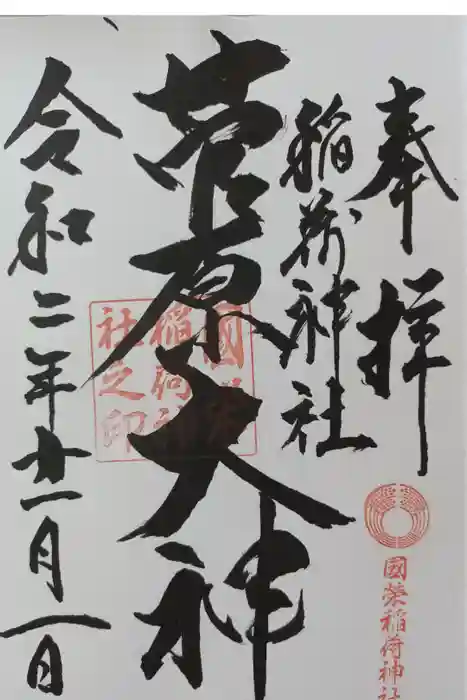 奉拝
國榮稲荷神社
稲荷神社
菅原大神
國榮
稲荷神
社之印
令和二年十一月一日